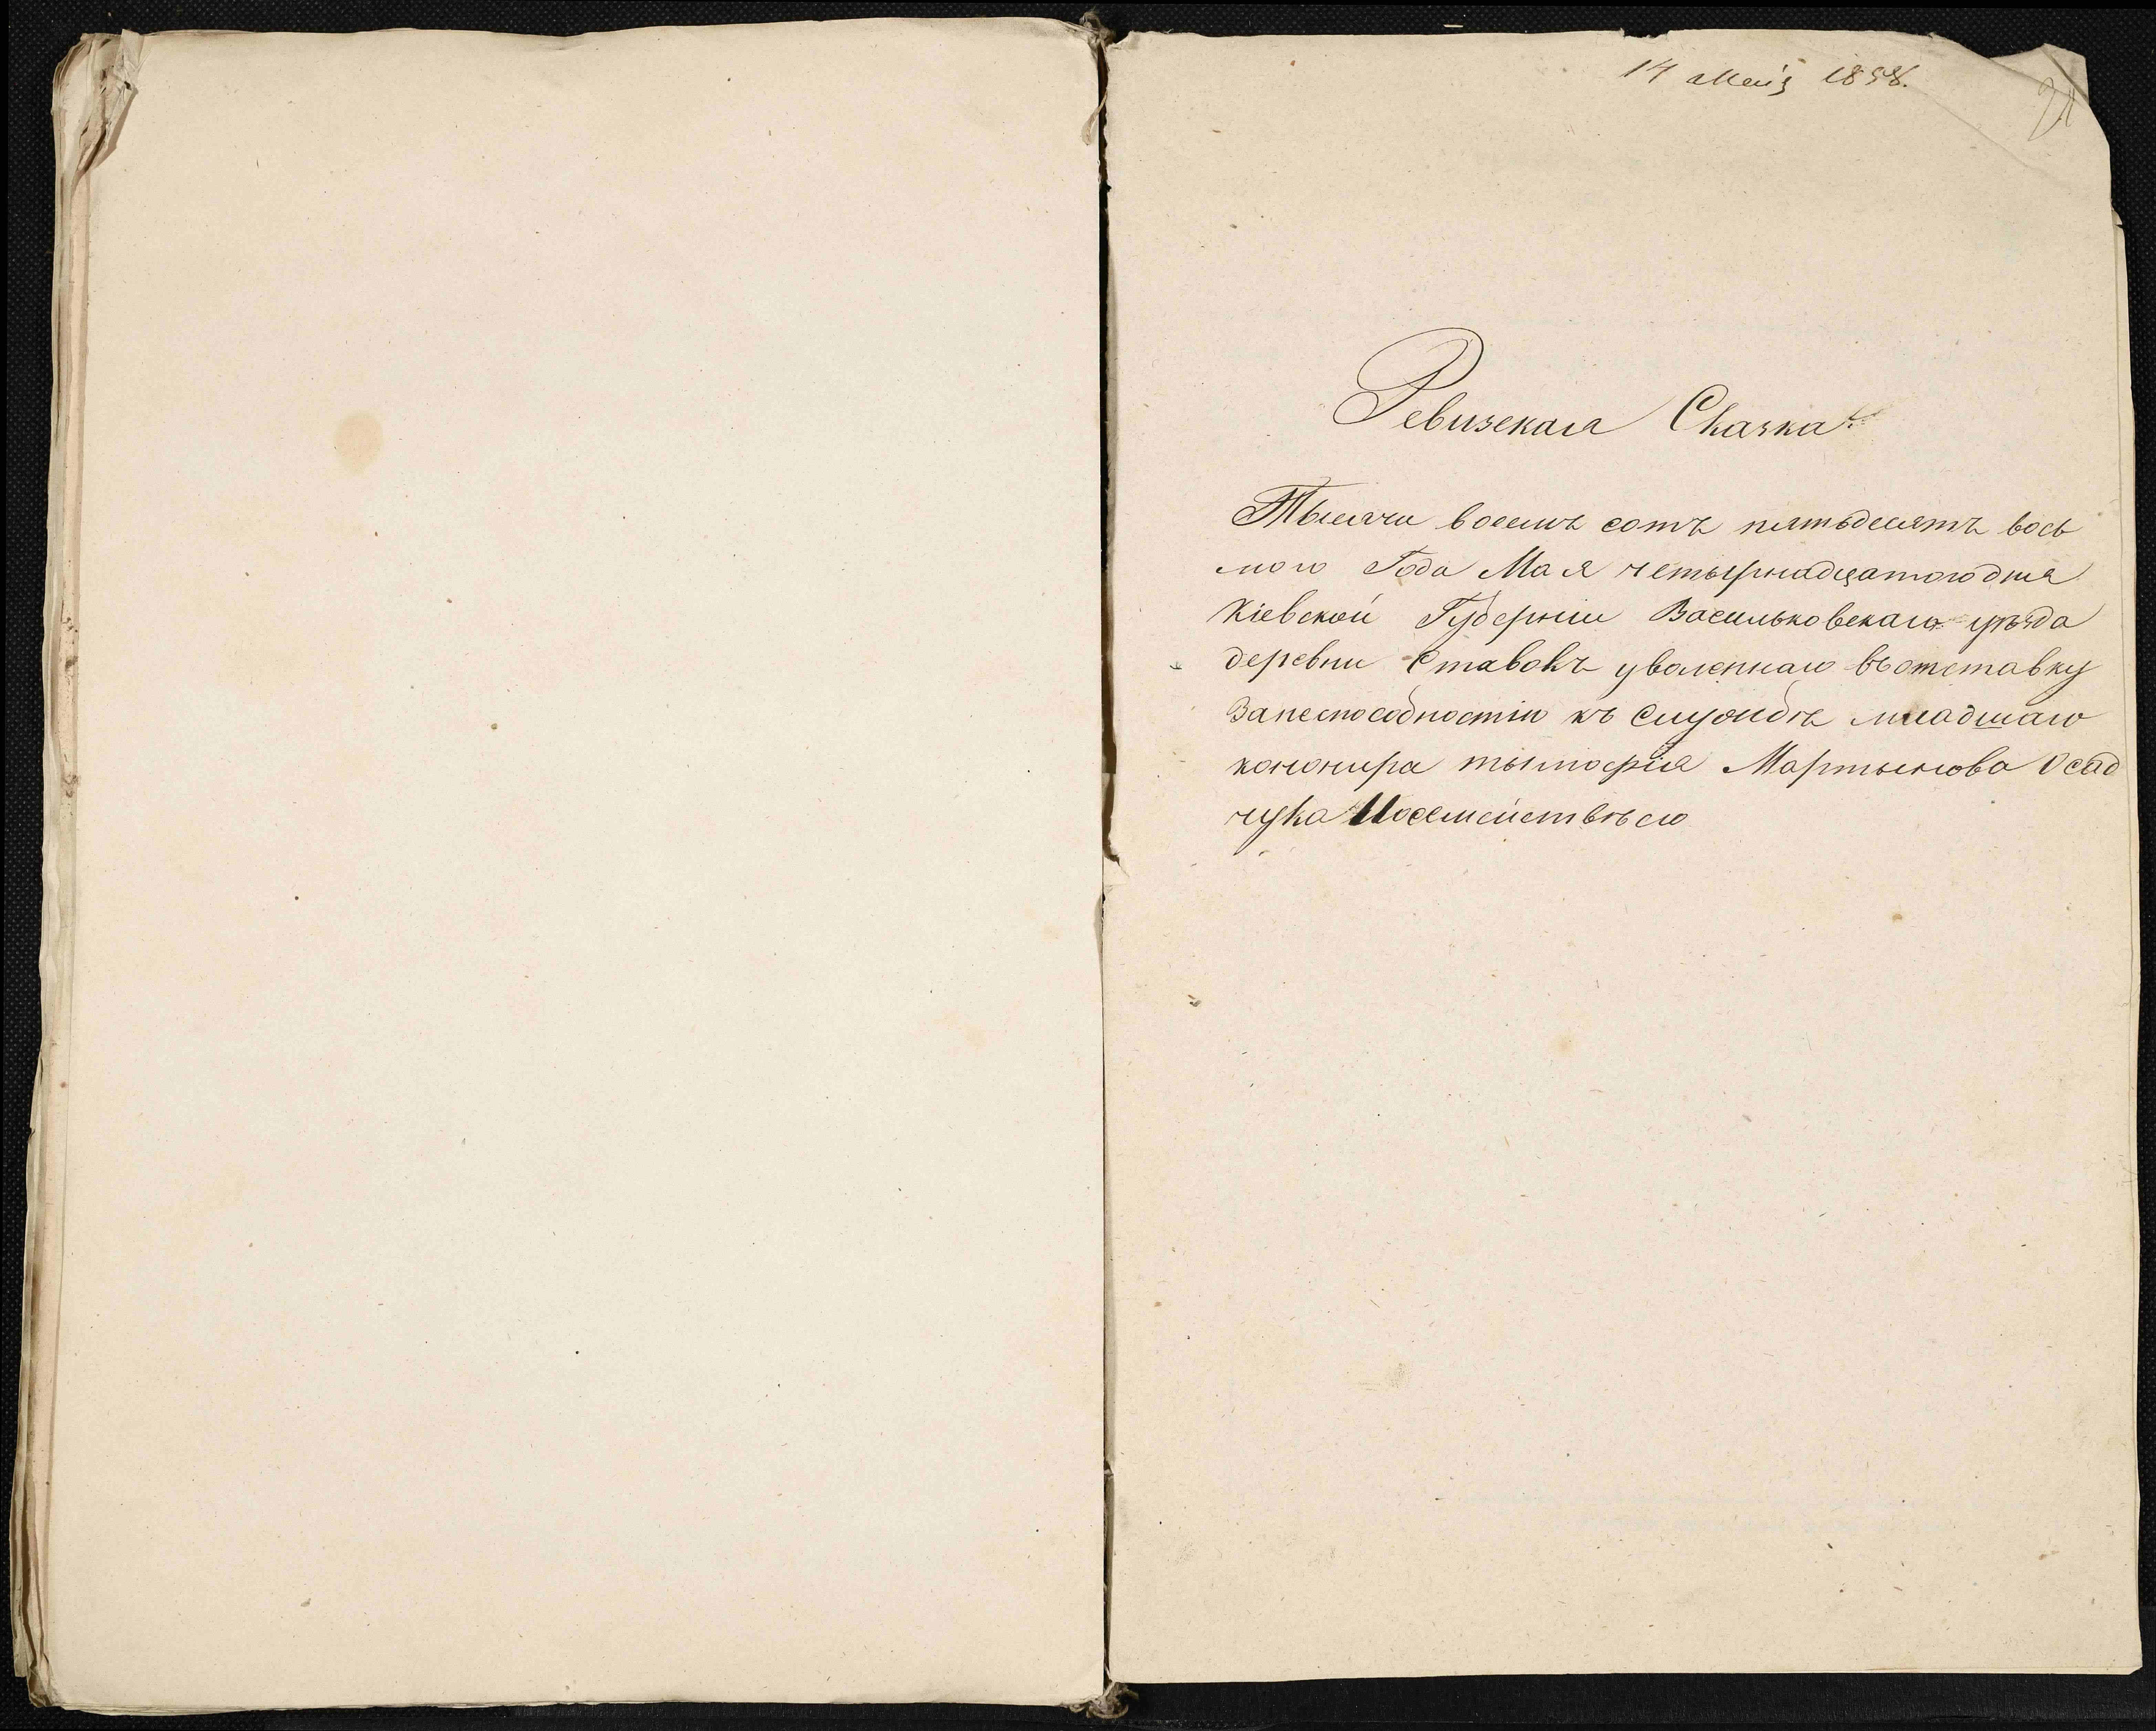 14 Маія 1858.
21
Ревизская Сказка
Тысяча восемъ сотъ пятьдесятъ вось
мого Года Мая четырнадцатого дня
Кіевской Губерніи Васильковскаго уѣзда
деревни Ставокъ уволеннаго въ отставку
За неспособностію къ Службѣ младшаго
кононира тымофія Мартынова Осад
чука И осемействѣ его